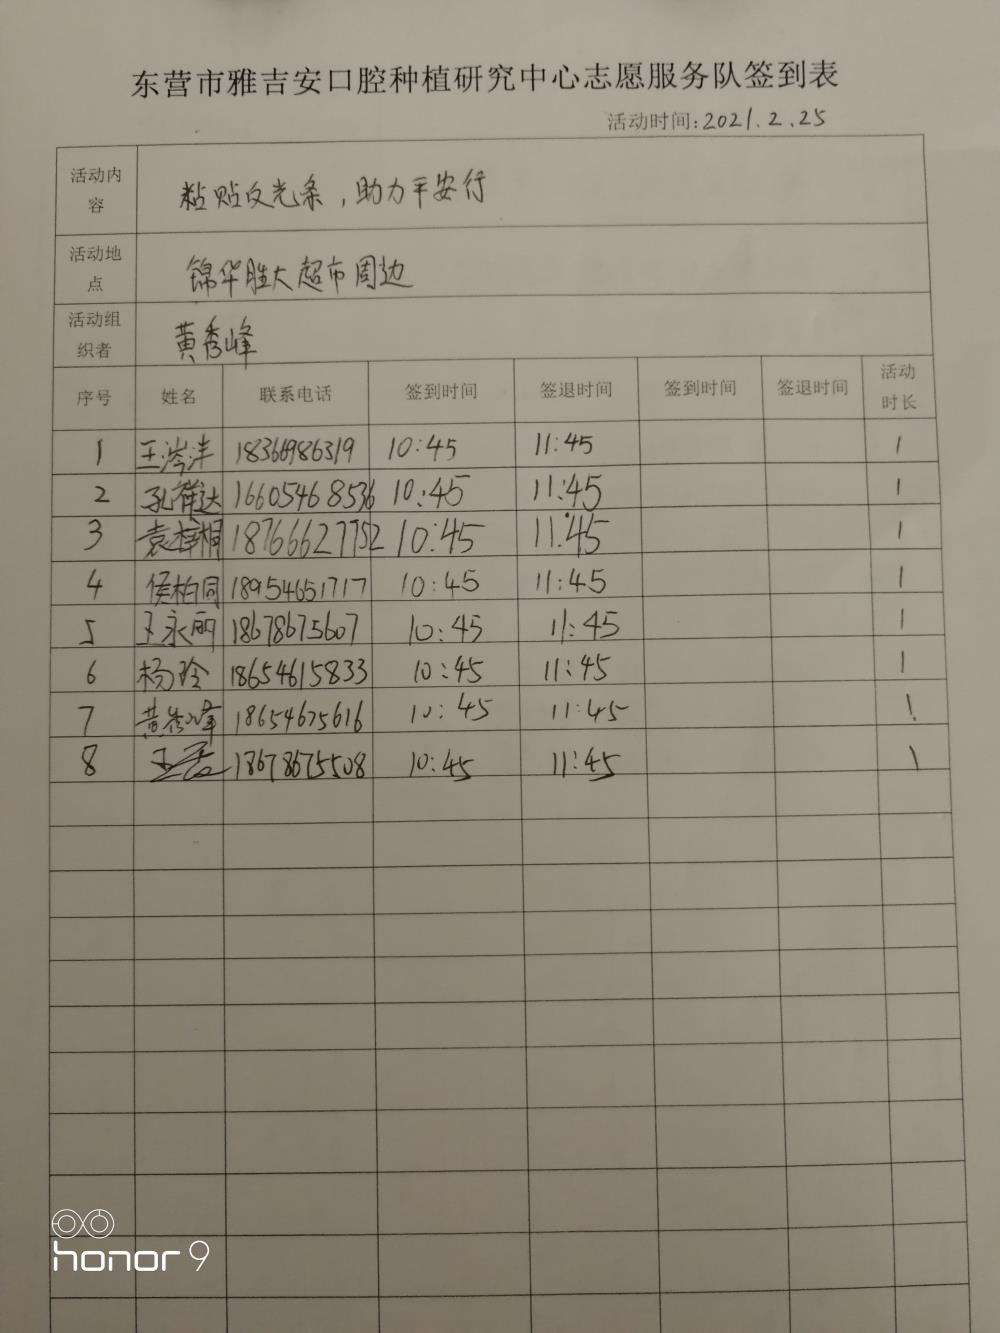 东营市雅吉安口腔种植研究中心志愿服务队签到表
活动时间:2021.2.25
活动内容 粘贴反光条,助力平安行
活动地点 锦华胜大超市周边
活动组织者 黄秀峰
序号 姓名 联系电话 签到时间 签退时间 签到时间 签退时间 活动时长
1 王涔沣 18366986319 10:45 11:45 1
2 孔祥达 16605468536 10:45 11:45 1
3 袁梓桐 18766627752 10:45 11:45 1
4 侯柏同 18954651717 10:45 11:45 1
5 王永丽 18678675607 10:45 11:45 1
6 杨玲 18654615833 10:45 11:45 1
7 黄秀峰 18654675616 10:45 11:45 1
8 王 18678675508 10:45 11:45 1
honor 9